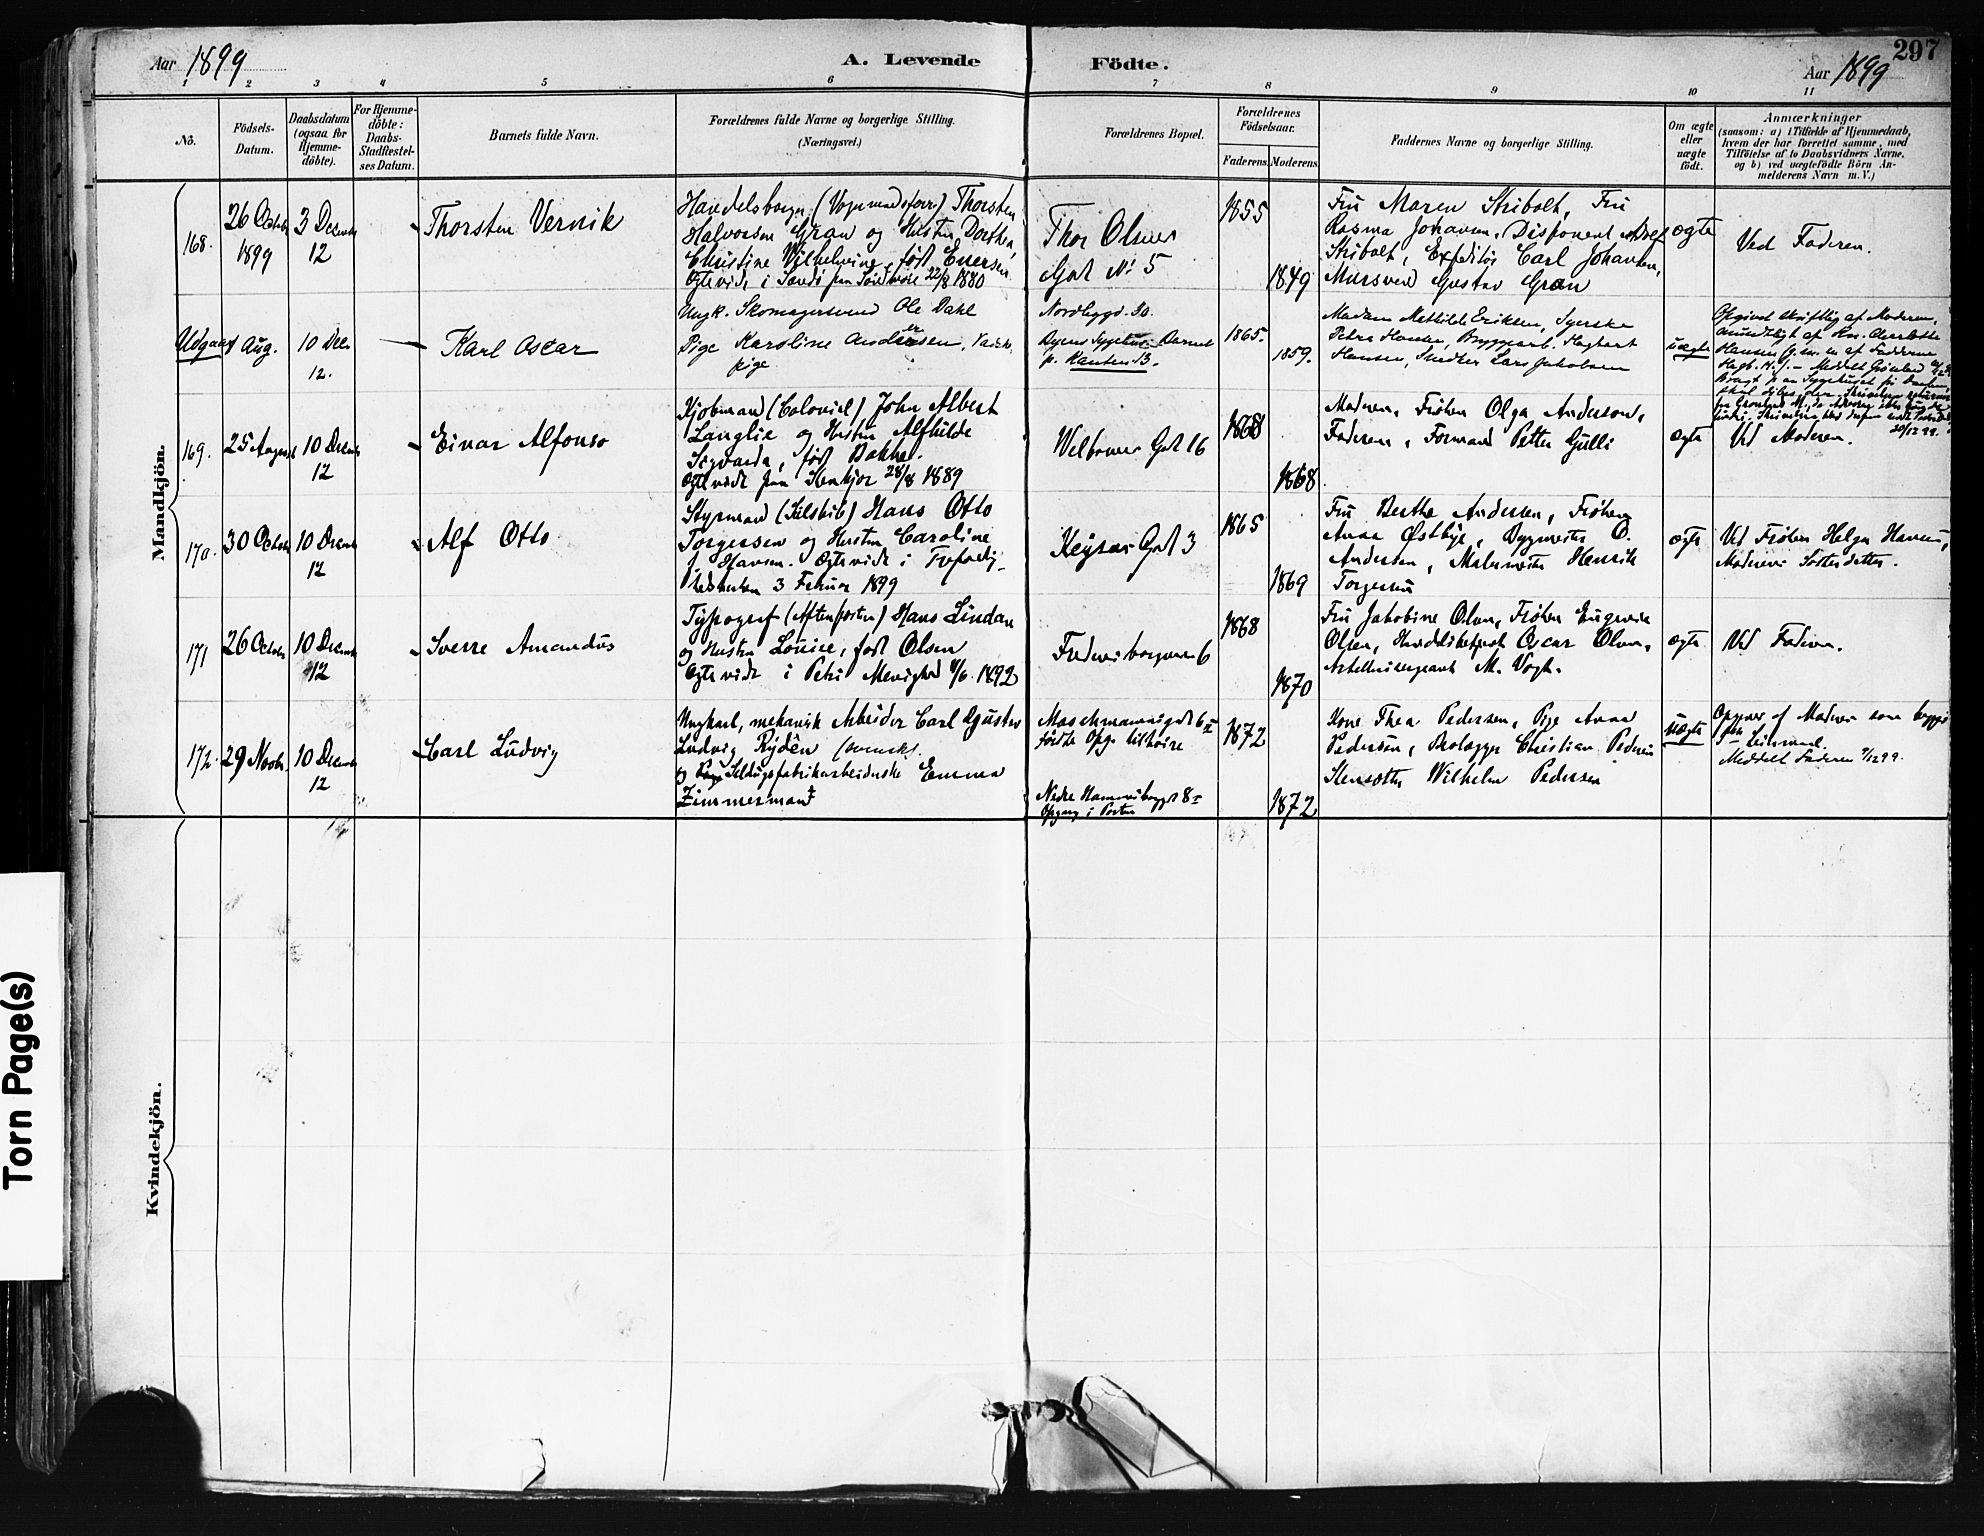 Aar 1899
A. Levende
Födte.
Aar 1899
297
1 2 3 4 5 6 7 8 9 10 11
No.
Födsels-
Datum.
Daabsdatum
(ogsaa for
Hjemme-
döbte).
For Hjemme-
döbte:
Daabs-
Stadfæstel-
ses Datum.
Barnets fulde Navn.
Forældrenes fulde Navne og borgerlige Stilling.
(Næringsvei.)
Forældrenes Bopæl.
Forældrenes
Födselsaar.
Faderens. Moderens.
Faddernes Navne og borgerlige Stilling.
Om ægte
eller
uægte
født.
Anmærkninger
(saasom: a) i Tilfælde af Hjemmedaab,
hvem der har forrettet samme, med
Tilföielse af to Daabsvidners Navne,
og b) ved uægtefödte Börn An-
melderens Navn m. V.)
Mandkjön.
168.
26 Octobr
1899
3 Decemb
12
Thorsten Vernik
Thorsten
Halvorsen Gran og Hustru Dorthea
Christine Wilhelmine, født Eversen
Ægteviede i 22/8 1880
Thor Olsens
Gad No 5
1855
1849
Fru Maren Stibolt, Fru
Rasma Johansen, Disponent Adolf
Stibolt, Expeditør Carl Johansen,
Mursvend Gustav Gran
ægte
Ved Faderen.
Udgaar
1 Aug.
10 Dec.
12.
Karl Oscar
Ungk. Skomagersvend Ole Dahl
Pige Karoline Andersen,
pige
Nordbygd. 30
p.
1865.
1859.
Madam Mathilde Eriksen, Syerske
Petra Hansen, Bryggearb. Hagbart
Hansen, Snedker Lars Jakobsen
uægte
Opgivet skriftlig af Moderen,
mundtligt af
Hansen
20/12 99.
169.
25 August
10 Decemb
12
Einar Alfonso
Kjøbmand (Colonial) John Albert
Langlie og Hustru Alfhilde
Sigvarda, født Bakke.
Ægteviede paa Stenkjær 28/8 1889
Welhavens Gad 16
1868
1868
Moderen, Frøken Olga Anderson,
Faderen, Formand Petter Gulli
ægte
Ved Moderen.
170.
30 Octobr
10 Decemb
12
Alf Otto
Styrmand (Seilskib) Hans Otto
Torgersen og Hustru Caroline
f. Hansen. Ægteviede i Trefoldig-
hedskirken 3 Februar 1899
Keysers Gad 3
1865
1869
Fru Berthe Andersen, Frøken
Anna Østbye, Bygmester O.
Andersen, Malermester Henrik
Torgersen
ægte
Ved Frøken Helga Hansen,
Moderens Søsterdatter.
171
26 October
10 Decemb
12
Sverre Amandus
Typograf (Aftenposten) Hans Lindau
og Hustru Louise, født Olsen
Ægteviede i Petri Menighed /6 1892
Fredensborgveien 6
1868
1870
Fru Jakobine Olsen, Frøken Eugenie
Olsen, Oscar Olsen,
Artillerisergeant M. Vogt.
ægte
Ved Faderen.
172.
29 Novbr.
10 Decemb
12
Carl Ludvig
Ungkarl, mekanisk Arbeider Carl Gustav
Ludvig Rydén (svensk)
og Pige Seildugsfabrikarbeiderske Emma
Zimmermann
Maschmannsgd 6 II
første Opg. tilhøire
Nedre Hammersborggd 8 I
Opgang i Porten
1872
1872
Kone Thea Pedersen, Pige Anna
Pedersen, Brolægger Christian Pedersen
Stensætter Wilhelm Pedersen
uægte
Opgivet af Moderen som
Meddelt Faderen /12 99.
Kvindekjön.
Torn Page(s)